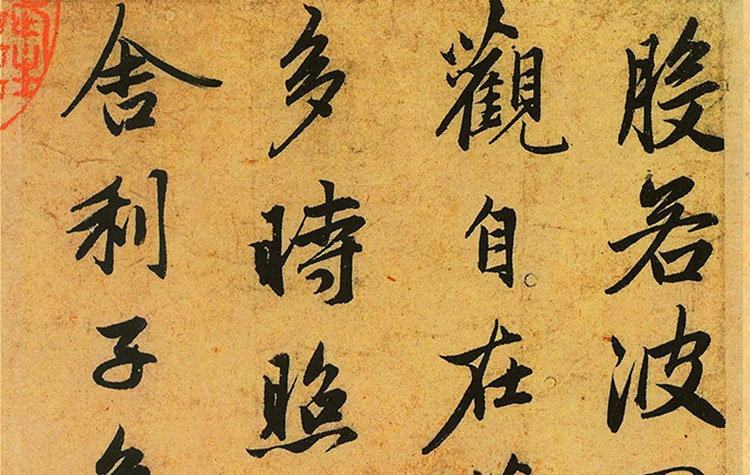 般若波
觀自在
多時照
舍利子